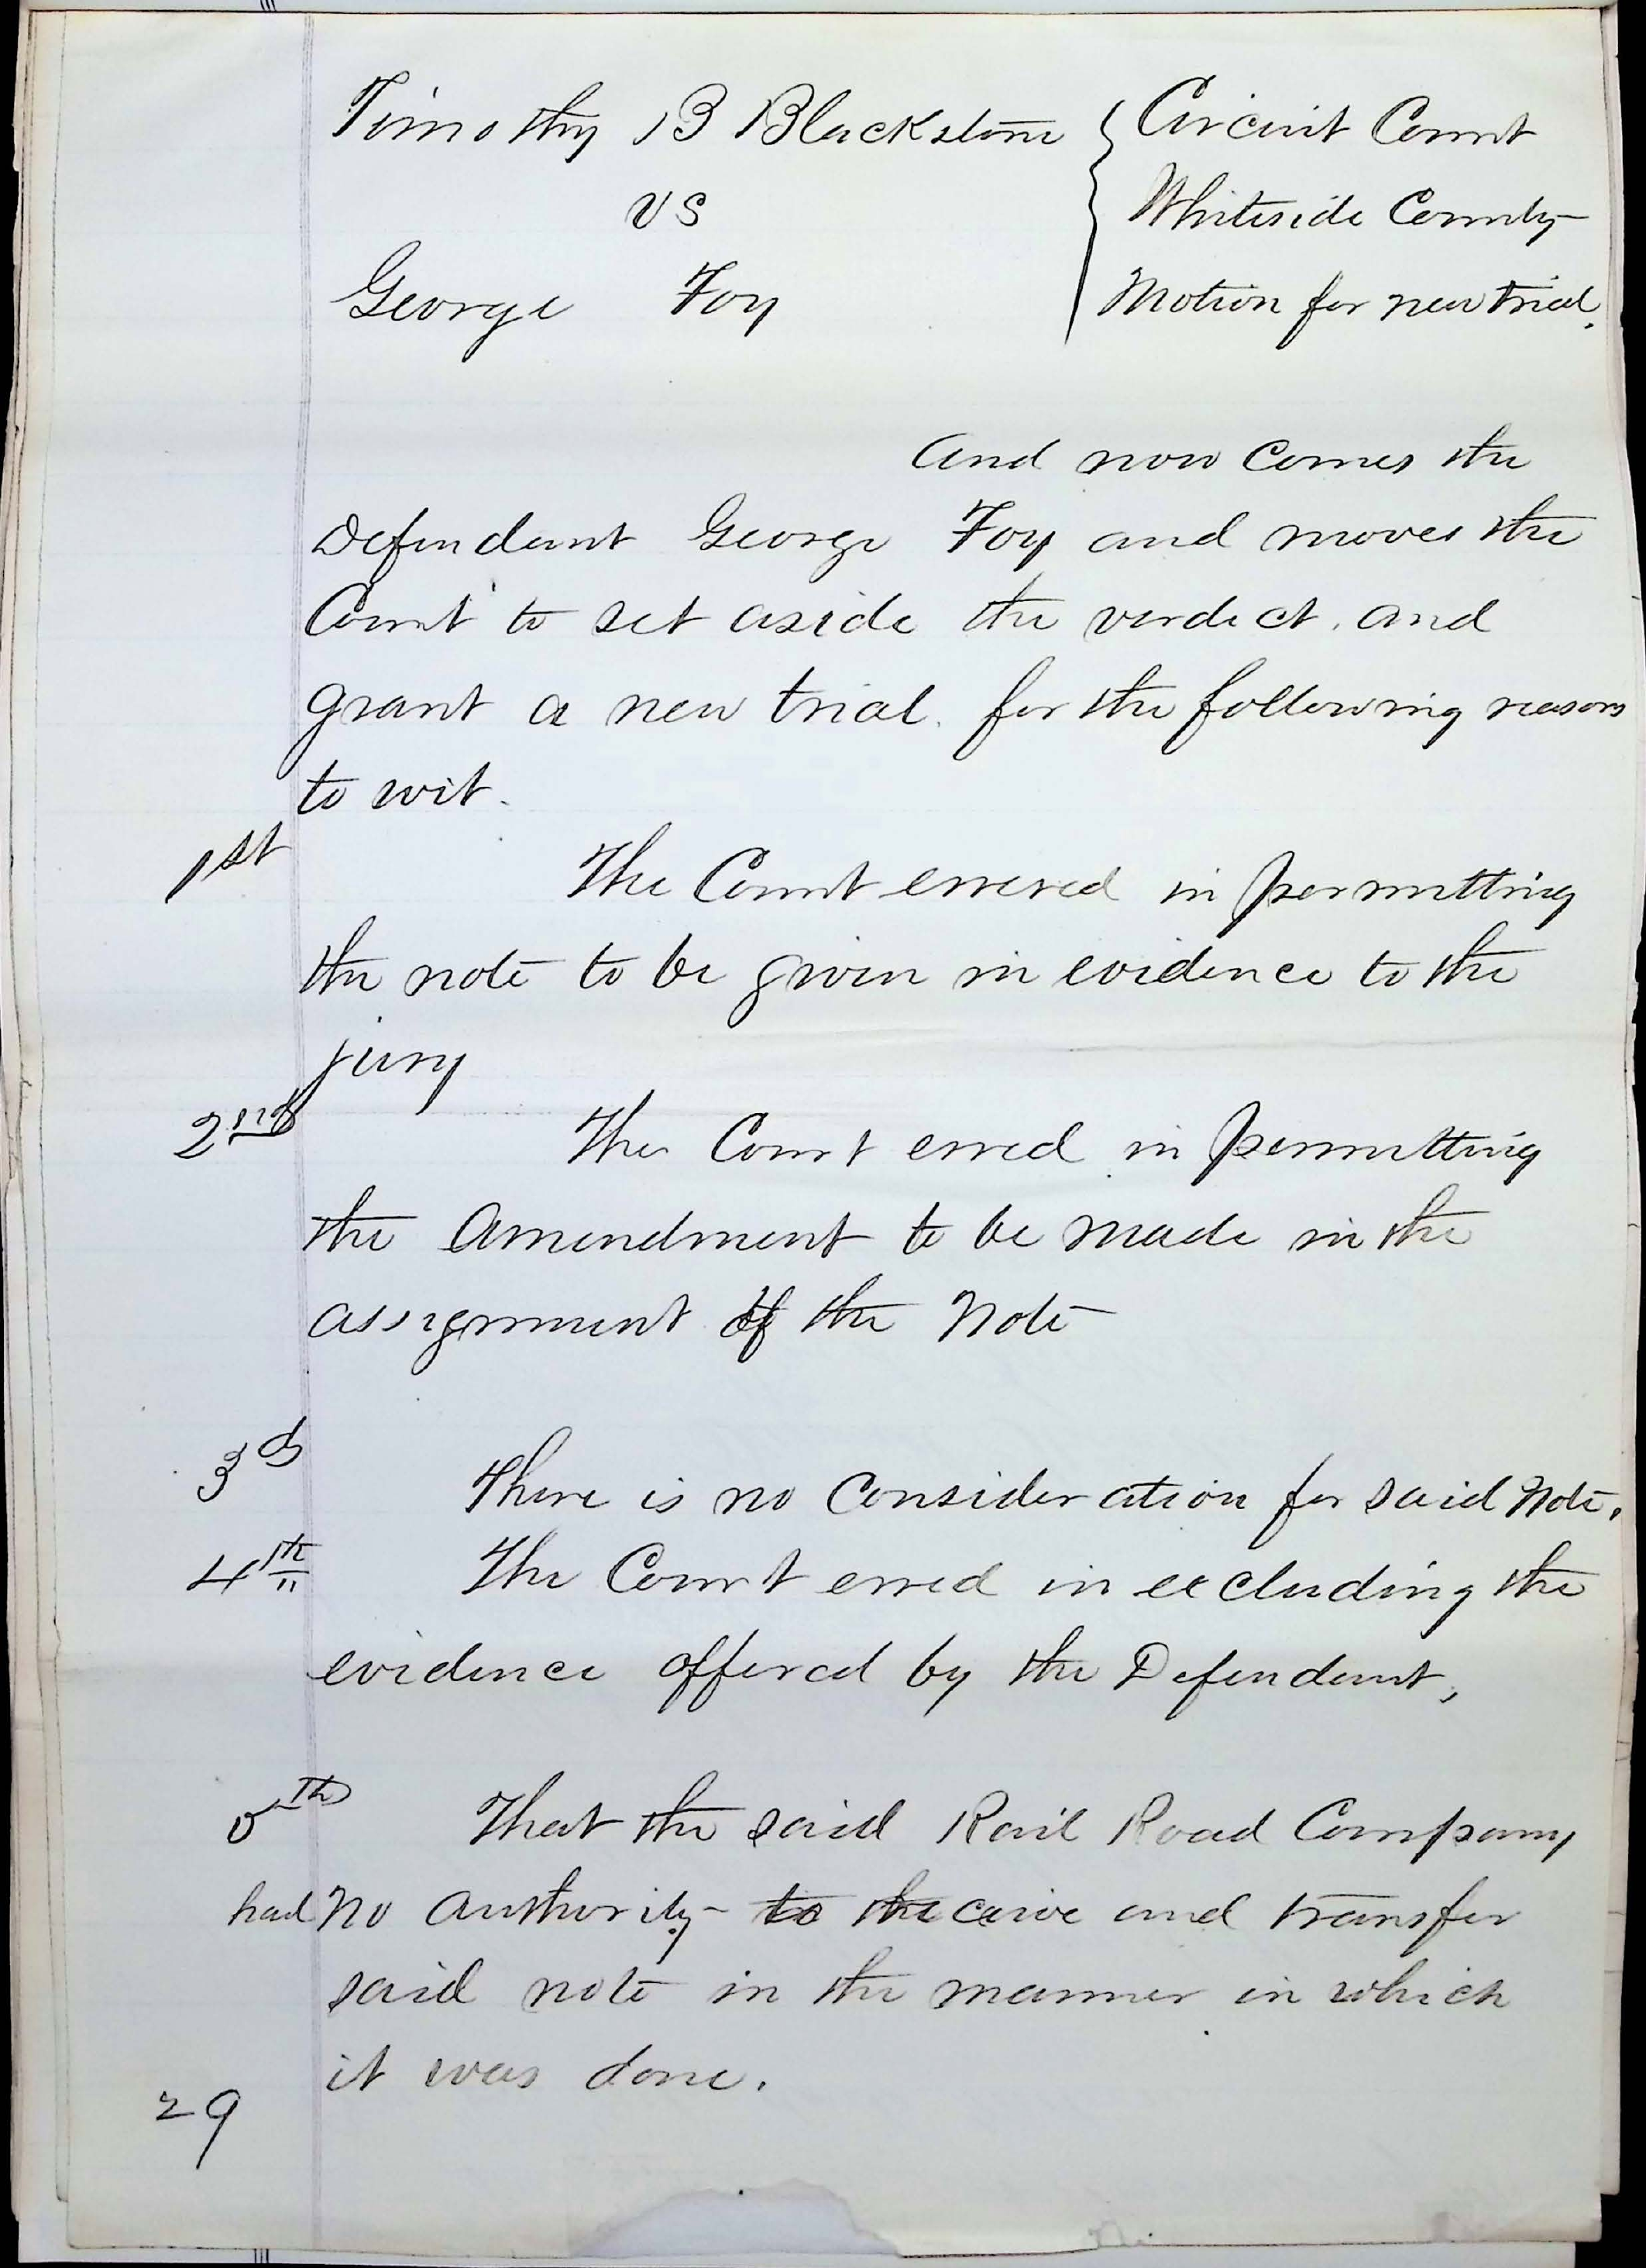 Timothy B Blackstone { Circuit Court
vs { Whiteside County
George Foy { Motion for new trial.
And now comes the
Defendant George Foy and moves the
Court to set aside the verdict, and
grant a new trial. for the following reasons
to wit.
1st The Court errered in permitting
the note to be given in evidence to the
jury
2nd The Court erred in permitting
the Amendment to be made in the
assignment of the Note
3d There is no Consideration for said Note.
4th The Court erred in excluding the
evidence offered by the Defendant,
5th That the said Rail Road Company
had no authority to receive and transfer
said note in the manner in which
it was done.
29